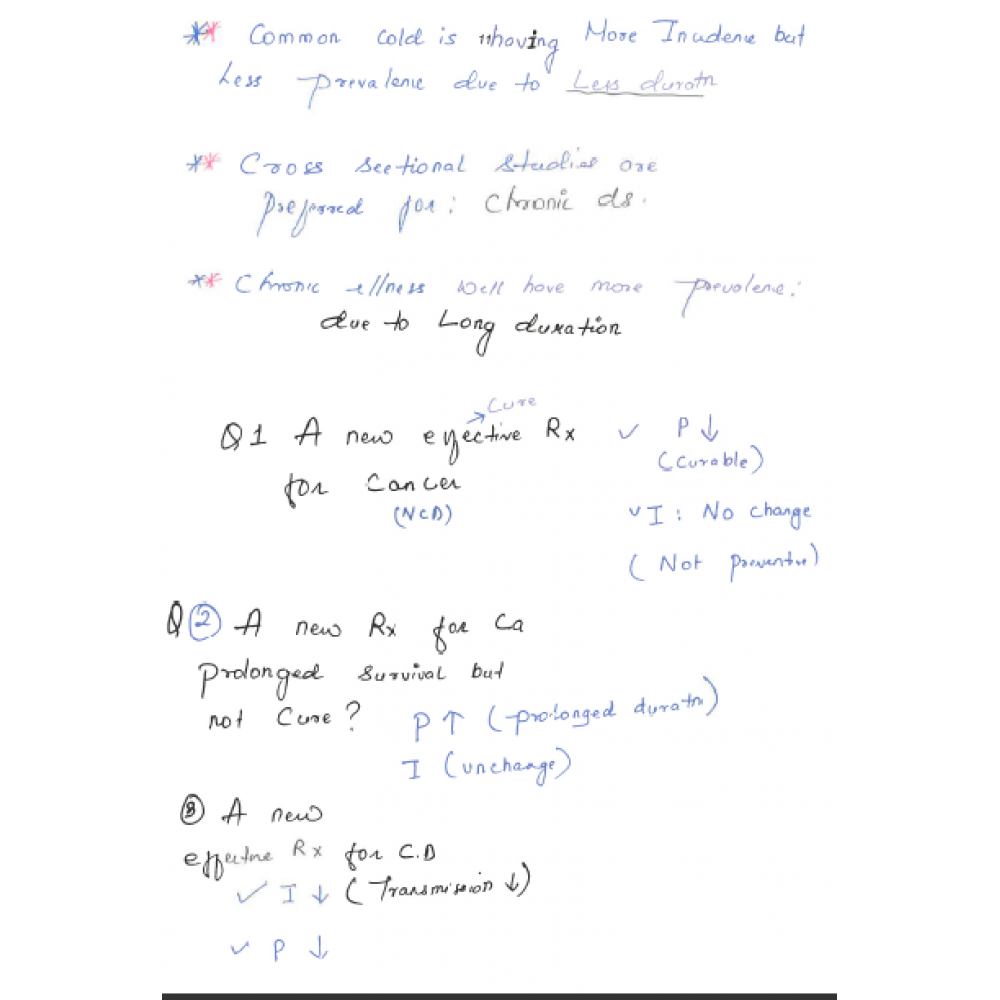 ** Common cold is having More Incidence but
Less prevalence due to Less duratn
** Cross sectional studies are
preferred for: Chronic ds.
** Chronic illness will have more prevalence:
due to Long duration
Cure
Q1 A new effective Rx ✓ P ↓
(Curable)
for Cancer
(NCD) ✓ I : No change
(Not preventive)
Q2 A new Rx for Ca
prolonged survival but
not Cure? P ↑ (prolonged duratn)
I (unchange)
3 A new
effective Rx for C.D
✓ I ↓ (Transmission ↓)
✓ P ↓